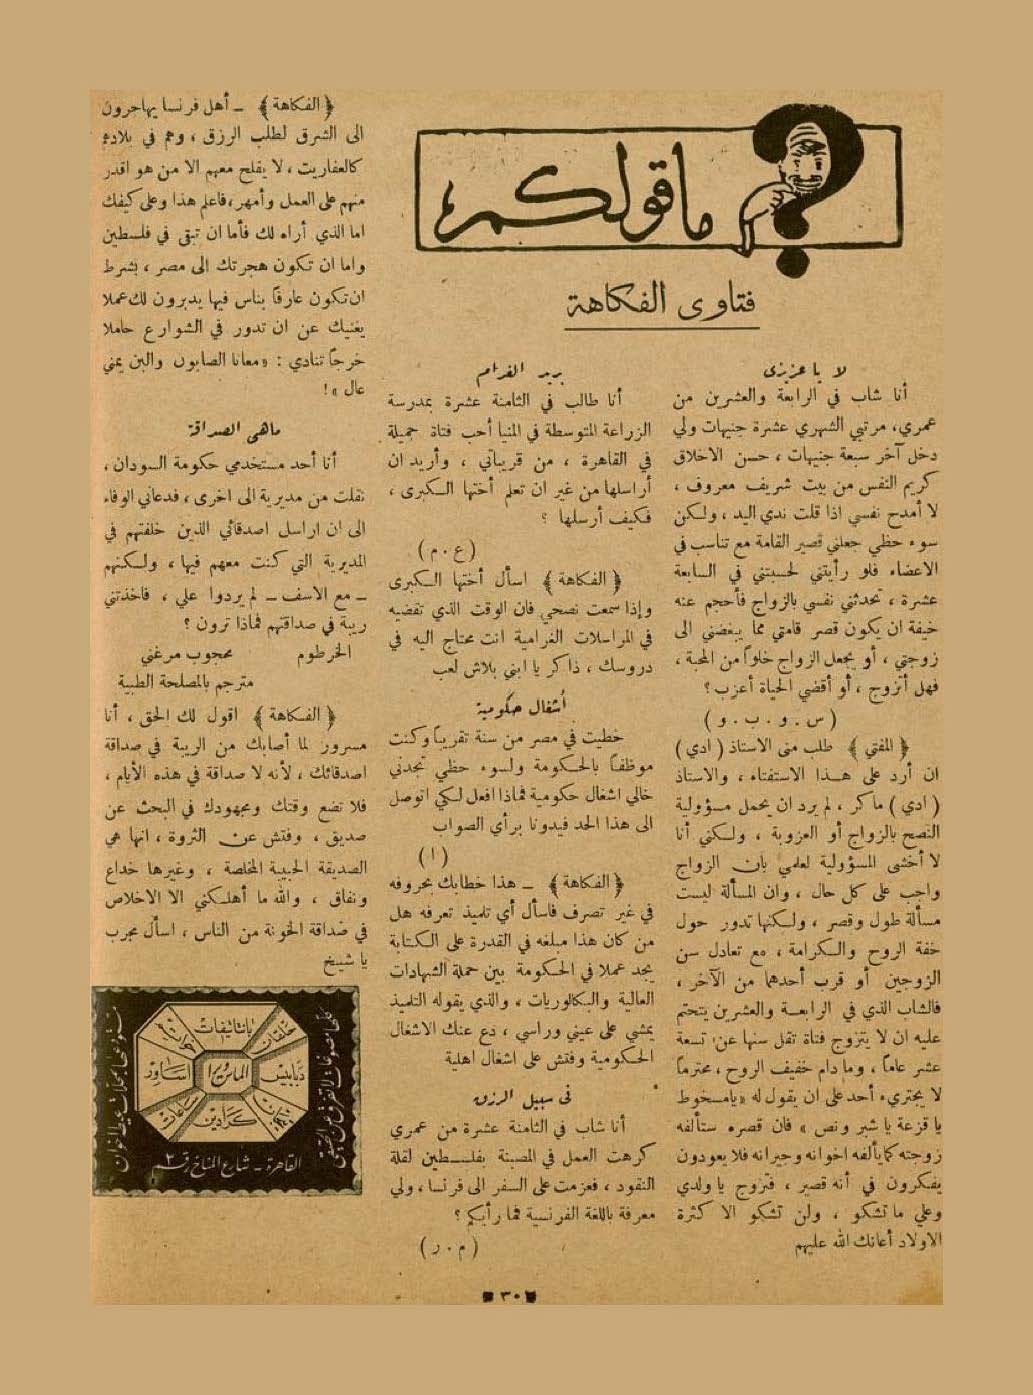 ما قولكم
فتاوى الفكاهة
لا يا عزيزى
أنا شاب في الرابعة والعشرين من
عمري، مرتبي الشهري عشرة جنيهات ولي
دخل آخر سبعة جنيهات ، حسن الاخلاق
كريم النفس من بيت شريف معروف ،
لا أمدح نفسي اذا قلت ندي اليد ، ولكن
سوء حظي جعلني قصير القامة مع تناسب في
الاعضاء فلو رأيتني لحسبتني في السابعة
عشرة ، تحدثني نفسي بالزواج فأحجم عنه
خيفة ان يكون قصر قامتي مما يبغضني الى
زوجتي ، أو يجعل الزواج خلواً من المحبة ،
فهل أتزوج ، أو أقضي الحياة أعزب ؟
( س . و . ب . و )
﴿ المفتي ﴾ طلب منى الاستاذ ( ادي )
ان أرد على هذا الاستفتاء ، والاستاذ
( ادي ) ماكر ، لم يرد ان يحمل مسؤولية
النصح بالزواج أو العزوبة ، ولكني أنا
لا أخشى المسؤولية لعلمي بان الزواج
واجب على كل حال ، وان المسألة ليست
مسألة طول وقصر ، ولكنها تدور حول
خفة الروح والكرامة ، مع تعادل سن
الزوجين أو قرب أحدهما من الآخر ،
فالشاب الذي في الرابعة والعشرين يتحتم
عليه ان لا يتزوج فتاة تقل سنها عن تسعة
عشر عاماً ، وما دام خفيف الروح ، محترماً
لا يجترىء أحد على ان يقول له « يا مسخوط
يا قزعة يا شبر ونص » فان قصره ستألفه
زوجته كما يألفه اخوانه وجيرانه فلا يعودون
يفكرون في أنه قصير ، فتزوج يا ولدي
وعلي ما تشكو ، ولن تشكو الا كثرة
الاولاد أعانك الله عليهم
بريد الغرام
أنا طالب في الثامنة عشرة بمدرسة
الزراعة المتوسطة في المنيا أحب فتاة جميلة
في القاهرة ، من قريباتي ، وأريد ان
أراسلها من غير ان تعلم أختها الكبرى ،
فكيف أرسلها ؟
( ع . م )
﴿ الفكاهة ﴾ اسأل أختها الكبرى
وإذا سمعت نصحي فان الوقت الذي تقضيه
في المراسلات الغرامية انت محتاج اليه في
دروسك ، ذاكر يا ابني بلاش لعب
أشغال حكومية
خطيت في مصر من سنة تقريباً وكنت
موظفاً بالحكومة ولسوء حظي تجدني
خالي اشغال حكومية فماذا افعل لكي اتوصل
الى هذا الحد فيدونا برأي الصواب
( ا )
﴿ الفكاهة ﴾ ــ هذا خطابك بحروفه
في غير تصرف فاسأل أي تلميذ تعرفه هل
من كان هذا مبلغه في القدرة على الكتابة
يجد عملا في الحكومة بين حملة الشهادات
العالية والبكالوريات ، والذي يقوله التلميذ
يمشي على عيني وراسي ، دع عنك الاشغال
الحكومية وفتش على اشغال اهلية
فى سبيل الرزق
أنا شاب في الثامنة عشرة من عمري
كرهت العمل في المصبنة بفلسطين لقلة
النقود ، فعزمت على السفر الى فرنسا ، ولي
معرفة باللغة الفرنسية فما رأيكم ؟
( م . ر )
﴿ الفكاهة ﴾ ــ أهل فرنسا يهاجرون
الى الشرق لطلب الرزق ، وهم في بلادهم
كالعفاريت ، لا يفلح معهم الا من هو اقدر
منهم على العمل وأمهر ، فاعلم هذا وعلى كيفك
اما الذي أراه لك فأما ان تبقى في فلسطين
واما ان تكون هجرتك الى مصر ، بشرط
ان تكون عارفاً بناس فيها يدبرون لك عملا
يغنيك عن ان تدور في الشوارع حاملا
خرجاً تنادي : « معانا الصابون والبن يمني
عال » !
ماهى الصداقة
أنا أحد مستخدمي حكومة السودان ،
نقلت من مديرية الى اخرى ، فدعاني الوفاء
الى ان اراسل اصدقائي الذين خلفتهم في
المديرية التي كنت معهم فيها ، ولكنهم
ــ مع الاسف ــ لم يردوا علي ، فاخذتني
ريبة في صداقتهم فماذا ترون ؟
الخرطوم محجوب مرغني
مترجم بالمصلحة الطبية
﴿ الفكاهة ﴾ اقول لك الحق ، أنا
مسرور لما أصابك من الريبة في صداقة
اصدقائك ، لأنه لا صداقة في هذه الأيام ،
فلا تضع وقتك ومجهودك في البحث عن
صديق ، وفتش عن الثروة ، انها هي
الصديقة الحبيبة المخلصة ، وغيرها خداع
ونفاق ، والله ما أهلكني الا الاخلاص
في صداقة الخونة من الناس ، اسأل مجرب
يا شيخ
ياناتيفات
حلقات
دبابيس
كرادين
ساعات
اساور
الماس
القاهرة ــ شارع المناخ رقم ٢
٣٠